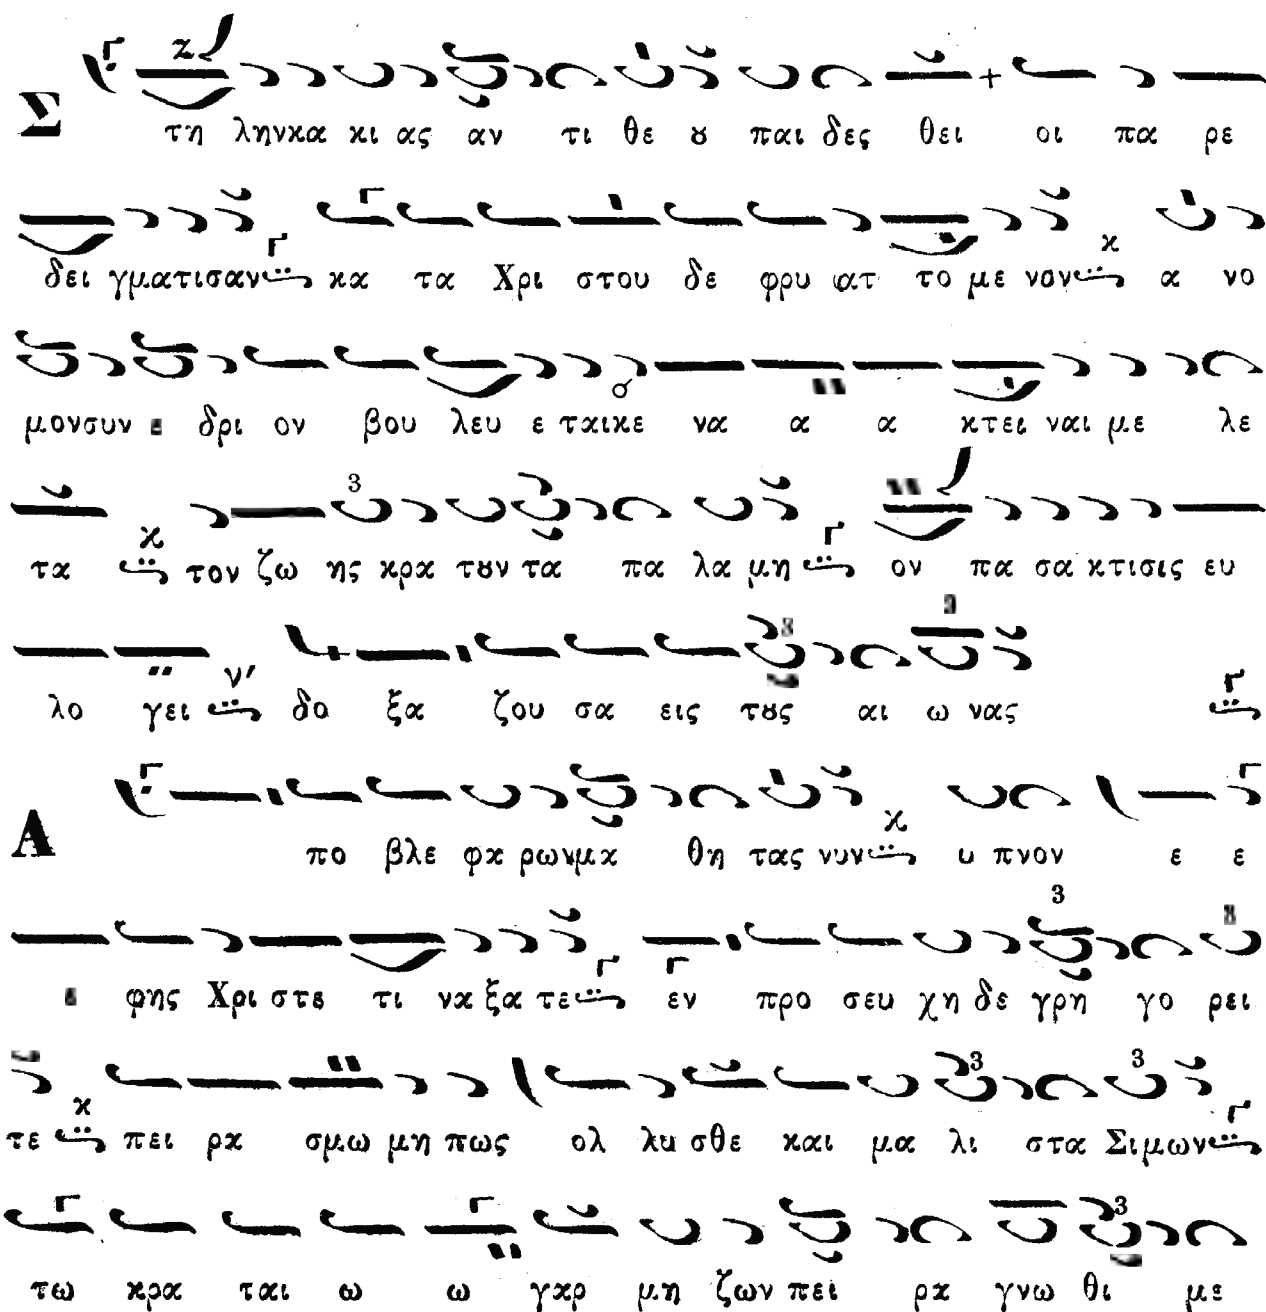 Σ τη λην κα κι ας αν τι θε ȣ παι δες θει οι πα ρε
δει γμα τι σαν κα τα Χρι στου δε φρυ ατ το με νον α νο
μον συν ε δρι ον βου λευ ε ται κε να α α κτει ναι με λε
τα τον ζω ης κρα τȣν τα πα λα μη ον πα σα κτι σις ευ
λο γει δο ξα ζου σα εις τȣς αι ω νας
Α πο βλε φα ρων μα θη τας νυν υ πνον ε ε
ε φης Χρι στε τι να ξα τε εν προ σευ χη δε γρη γο ρει
τε πει ρα σμω μη πως ολ λυ σθε και μα λι στα Σι μων
τω κρα ται ω ω γαρ μη ζων πει ρα γνω θι με